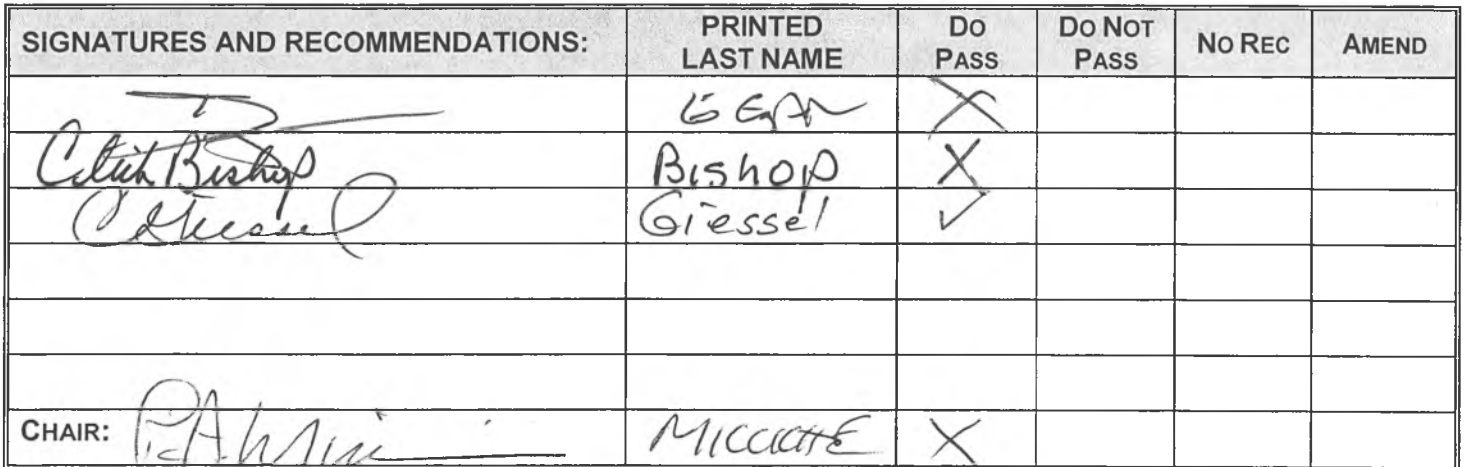 SIGNATURES AND RECOMMENDATIONS: PRINTED LAST NAME DO PASS DO NOT PASS NO REC AMEND
EGAN X
Bishop Bishop X
Giessel ✓
CHAIR: MICCICHE X